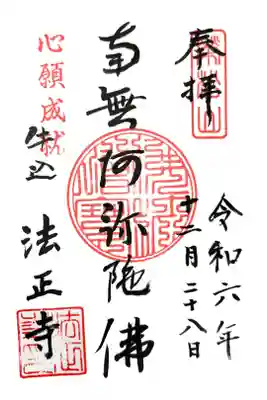 奉拝
令和六年
十二月二十八日
南無阿弥陀佛
心願成就
牛込 法正寺